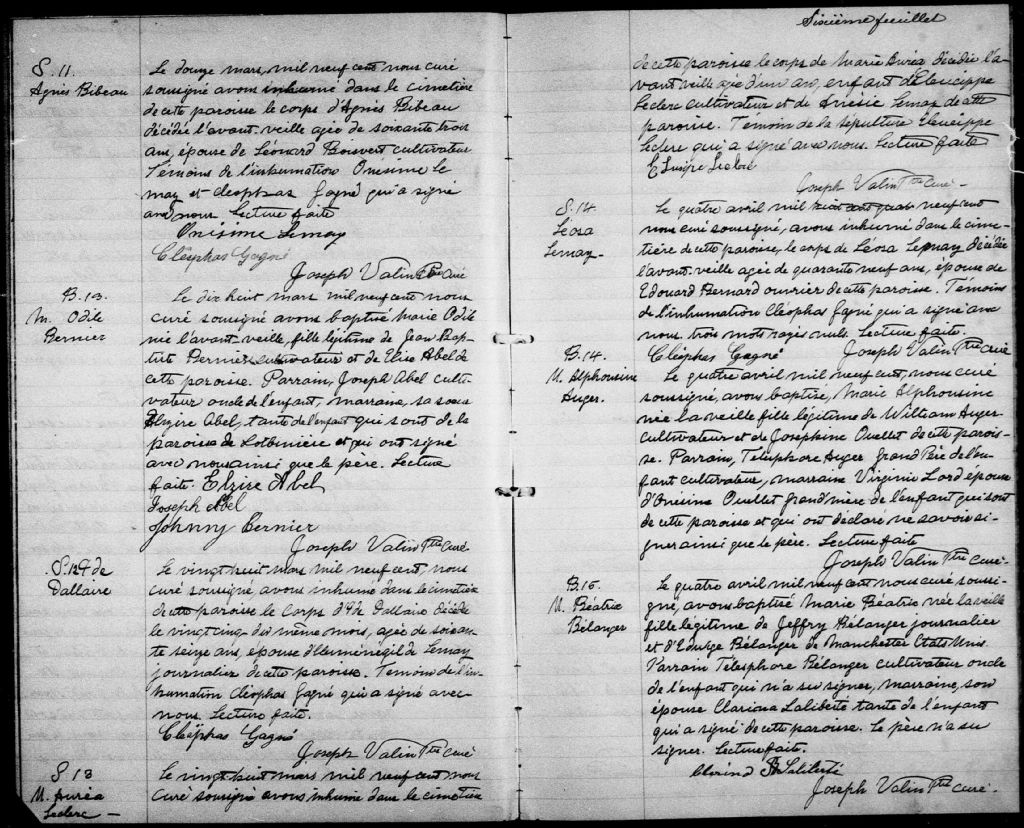 S. 11.
Agnès Bibeau
Le douze mars, mil neuf cent nous curé
soussigné avons inhumé dans le cimetière
de cette paroisse le corps d'Agnès Bibeau
décédée l'avant-veille agée de soixante trois
ans, épouse de Léonard Boisvert cultivateur
Témoins de l'inhumation Onésime Le
may et Cleophas Gagné qui a signé
avec nous. Lecture faite
Onésime Lemay
Cléophas Gagné
Joseph Valin Ptre Curé
B. 13.
M. Odile
Bernier
Le dix huit mars mil neuf cent nous
curé soussigné avons baptisé Marie Odile
née l'avant-veille, fille légitime de Jean Bap-
tiste Bernier, cultivateur et de Elise Abel de
cette paroisse. Parrain, Joseph Abel culti-
vateur oncle de l'enfant, marraine, sa soeur
Elzire Abel, tante de l'enfant qui sont de la
paroisse de Lotbinière et qui ont signé
avec nous ainsi que le père. Lecture
faite. Elzire Abel
Joseph Abel
Johnny Bernier
Joseph Valin Ptre Curé
de
Dallaire
Le vingt huit mars mil neuf cent nous
curé soussigné, avons inhumé dans le cimetière
de cette paroisse le corps Dallaire décédée
le vingt cinq du même mois, agée de soixan-
te seize ans, épouse d'Herménégilde Lemay
journalier de cette paroisse. Temoins de l'in-
humation Cléophas Gagné qui a signé avec
nous. Lecture faite.
Cléophas Gagné
Joseph Valin Ptre curé
S 13
M. Auréa
Leclerc —
Le vingt-huit mars mil neuf cent nous
curé soussigné avons inhumé dans le cimetière
Sixième feuillet
de cette paroisse le corps de Marie Auréa décédée l'a-
vant veille agée d'un an, enfant d'Eleucippe
Leclerc cultivateur et de Lemay de cette
paroisse. Témoin de la sépulture Eleucippe
Leclerc qui a signé avec nous. Lecture faite
Leclerc
Joseph Valin Ptre Curé —
S. 14.
Léosa
Lemay —
Le quatre avril mil huit cent quatr neuf cent
nous curé soussigné, avons inhumé dans le cime-
tière de cette paroisse, le corps de Léosa Lemay décédée
l'avant-veille agée de quarante neuf ans, épouse de
Edouard Bernard ouvrier de cette paroisse. Témoins
de l'inhumation Cléophas Gagné qui a signé avec
nous trois mots rayés nuls. Lecture faite.
Cléophas Gagné
Joseph Valin Ptre Curé
B. 14.
M. Alphonsine
Auger.
Le quatre avril mil neuf cent, nous curé
soussigné, avons baptisé, Marie Alphonsine
née la veille fille légitime de William Auger
cultivateur et de Josephine Ouellet de cette parois-
se. Parrain, Télesphore Auger Grand Père de l'en-
fant cultivateur, marraine Virginie Lord épouse
d'Onésime Ouellet grand'mère de l'enfant qui sont
de cette paroisse et qui ont déclaré ne savoir si-
gner ainsi que le père. Lecture faite
Joseph Valin Ptre curé.
B. 15.
M. Béatrix
Bélanger
Le quatre avril mil neuf cent nous curé soussi-
gné, avons baptisé Marie Béatrix née la veille
fille légitime de Jeffry Bélanger journalier
et d'Edwige Bélanger de Manchester Etats Unis
Parrain Télesphore Bélanger cultivateur oncle
de l'enfant qui n'a su signer, marraine, son
épouse Clarinda Laliberté tante de l'enfant
qui a signé de cette paroisse. Le père n'a su
signer. Lecture faite.
Laliberté
Joseph Valin Ptre Curé.